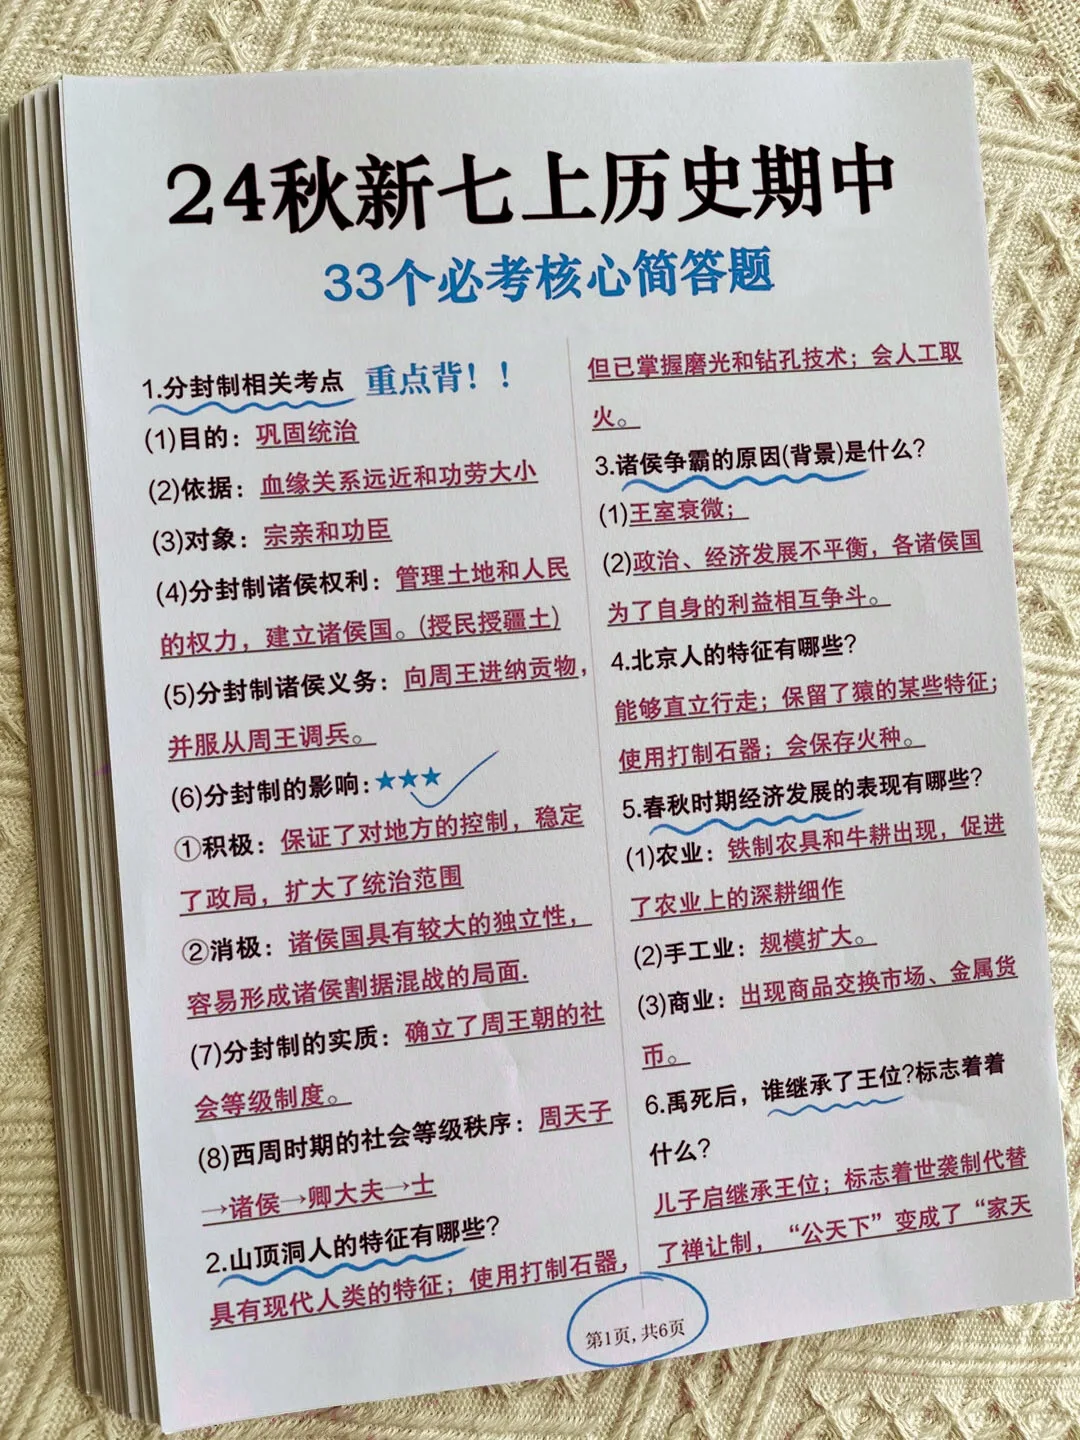 24秋新七上历史期中
33个必考核心简答题
1.分封制相关考点 重点背！！
(1)目的：巩固统治
(2)依据：血缘关系远近和功劳大小
(3)对象：宗亲和功臣
(4)分封制诸侯权利：管理土地和人民
的权力，建立诸侯国。(授民授疆土)
(5)分封制诸侯义务：向周王进纳贡物，
并服从周王调兵。
(6)分封制的影响：★★★
①积极：保证了对地方的控制，稳定
了政局，扩大了统治范围
②消极：诸侯国具有较大的独立性，
容易形成诸侯割据混战的局面.
(7)分封制的实质：确立了周王朝的社
会等级制度。
(8)西周时期的社会等级秩序：周天子
→诸侯→卿大夫→士
2.山顶洞人的特征有哪些?
具有现代人类的特征；使用打制石器，
但已掌握磨光和钻孔技术；会人工取
火。
3.诸侯争霸的原因(背景)是什么?
(1)王室衰微；
(2)政治、经济发展不平衡，各诸侯国
为了自身的利益相互争斗。
4.北京人的特征有哪些?
能够直立行走；保留了猿的某些特征；
使用打制石器；会保存火种。
5.春秋时期经济发展的表现有哪些?
(1)农业：铁制农具和牛耕出现，促进
了农业上的深耕细作
(2)手工业：规模扩大。
(3)商业：出现商品交换市场、金属货
币。
6.禹死后，谁继承了王位?标志着着
什么?
儿子启继承王位；标志着世袭制代替
了禅让制，“公天下”变成了“家天
第1页,共6页